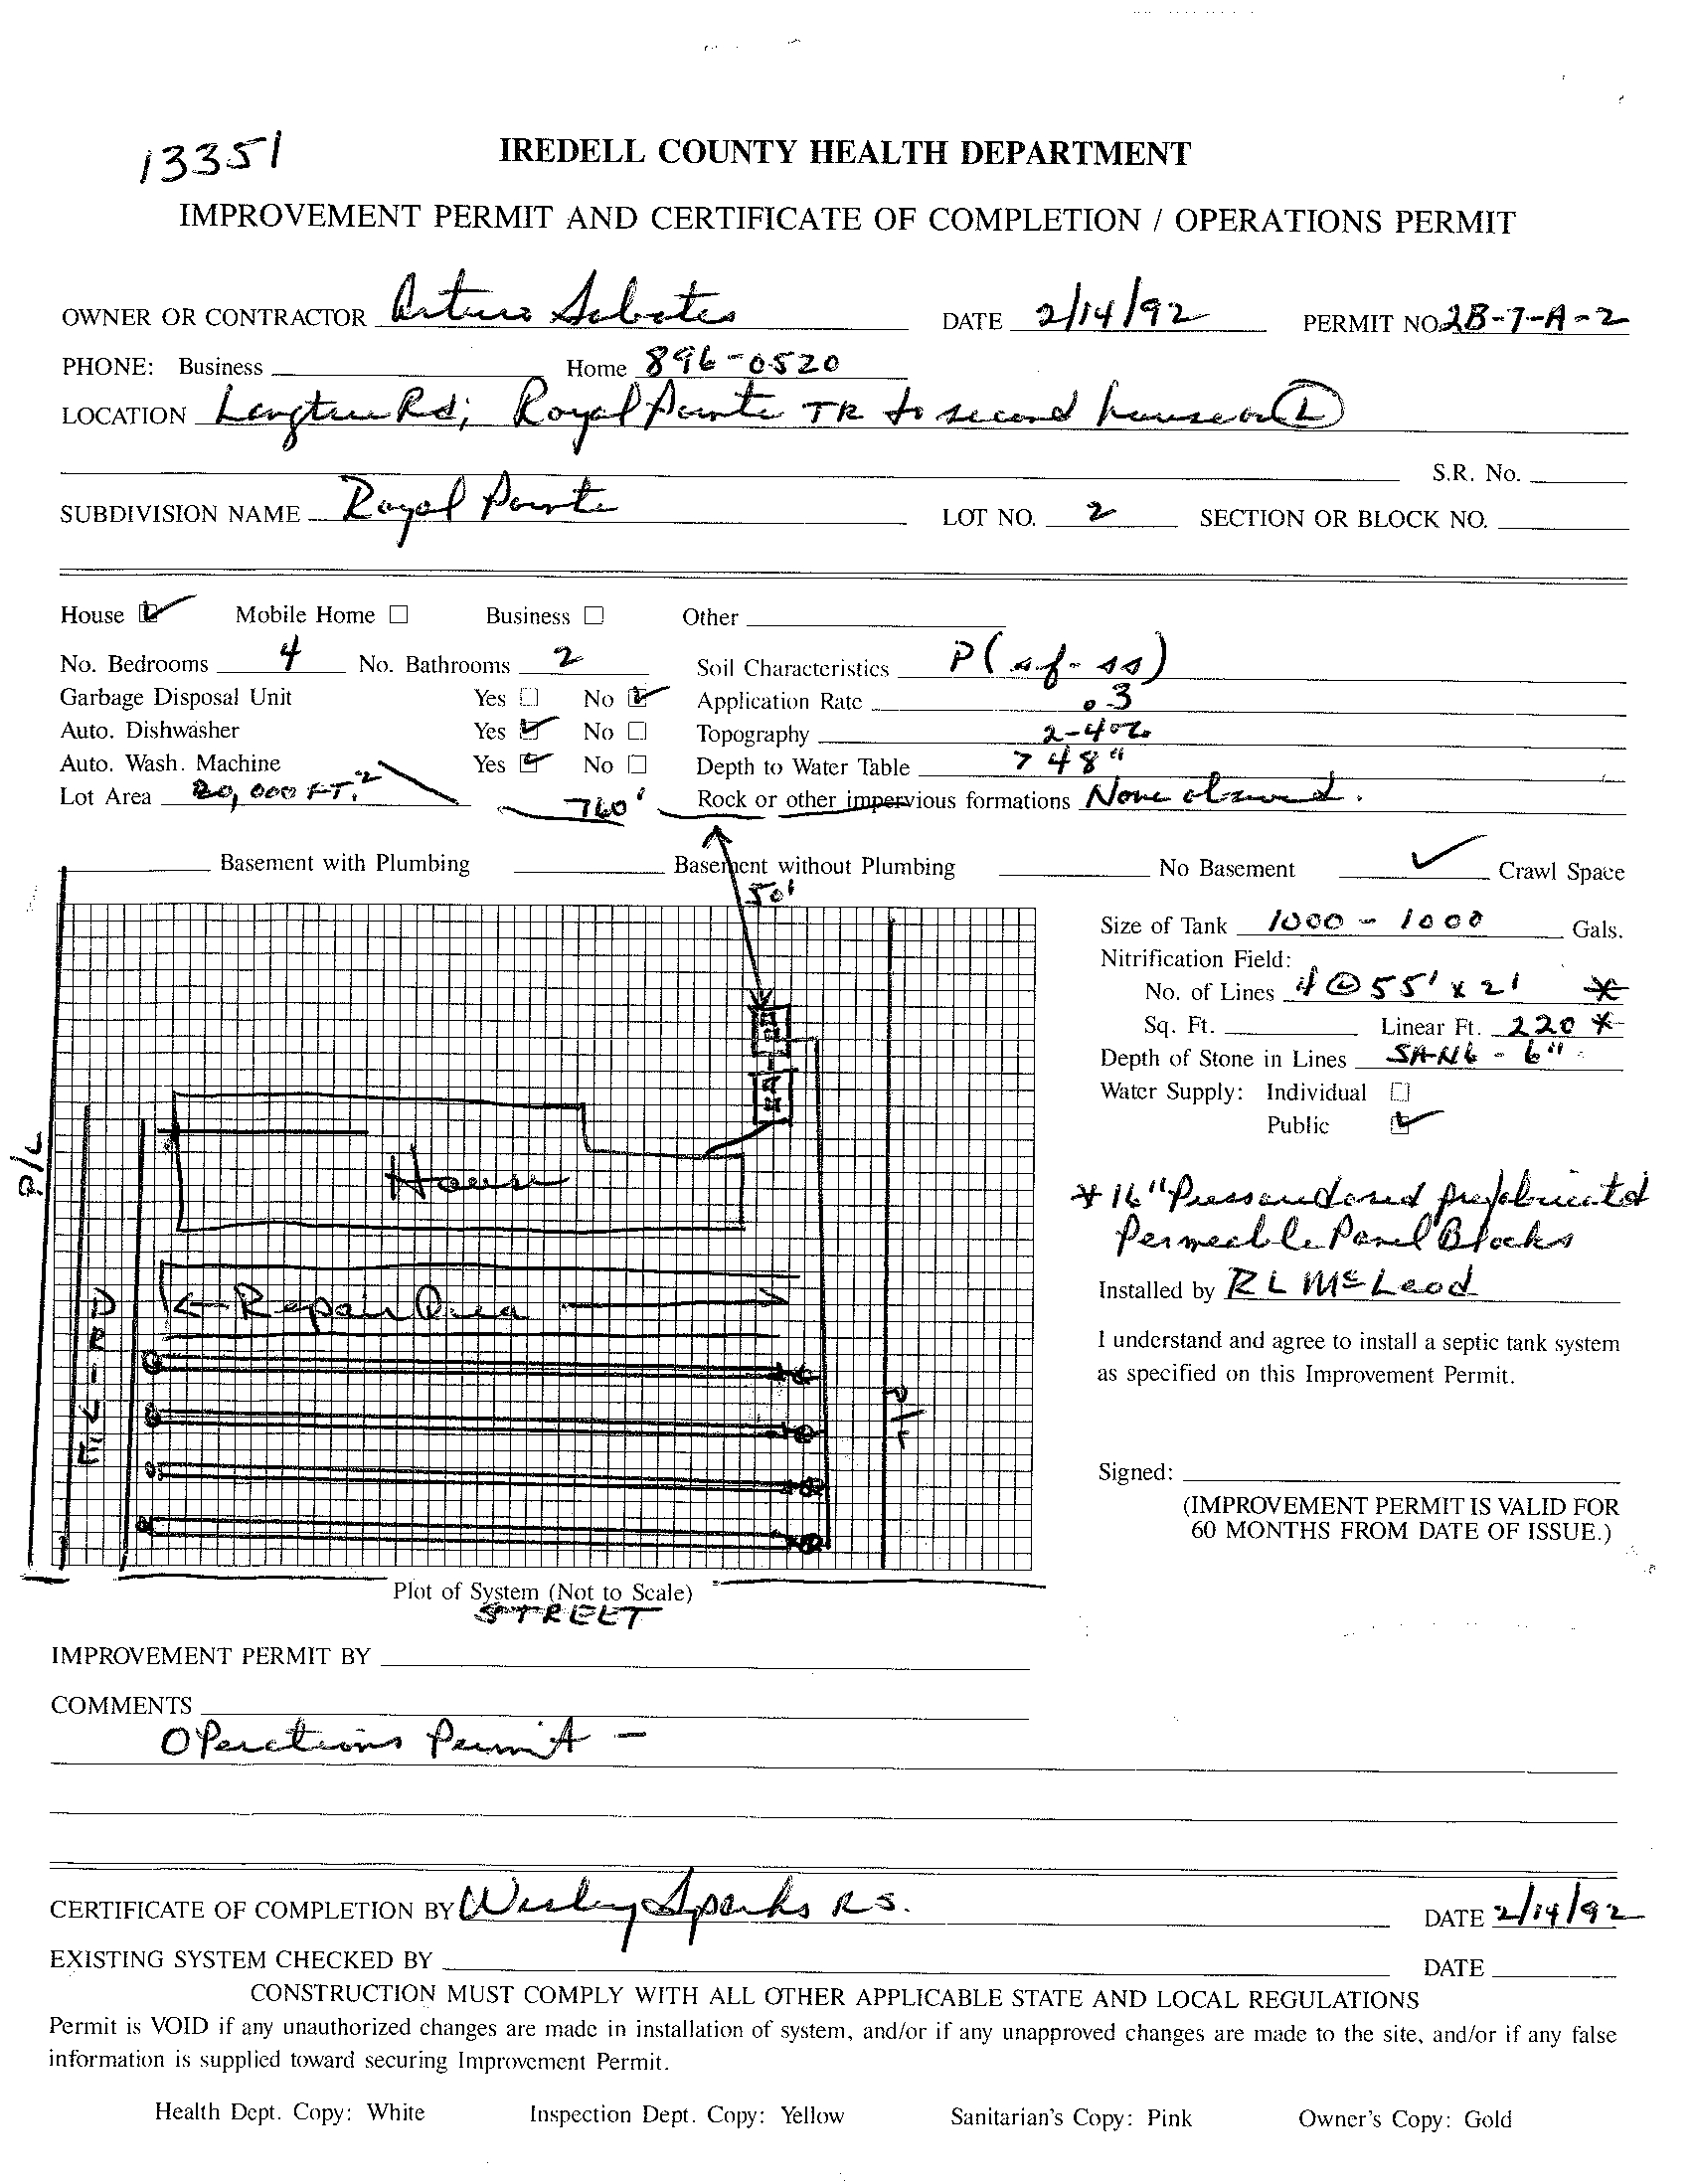 13351
IREDELL COUNTY HEALTH DEPARTMENT
IMPROVEMENT PERMIT AND CERTIFICATE OF COMPLETION / OPERATIONS PERMIT
OWNER OR CONTRACTOR Arturo Sabates DATE 2/14/92 PERMIT NO. 2B-7-A-2
PHONE: Business Home 896-0520
LOCATION Langtree Rd; Royal Pointe TR to second house on L
S.R. No.
SUBDIVISION NAME Royal Pointe LOT NO. 2 SECTION OR BLOCK NO.
House Mobile Home Business Other
No. Bedrooms 4 No. Bathrooms 2 Soil Characteristics P(sf-ss)
Garbage Disposal Unit Yes No Application Rate .3
Auto. Dishwasher Yes No Topography 2-4%
Auto. Wash. Machine Yes No Depth to Water Table > 48"
Lot Area 20,000 FT.² 760' Rock or other impervious formations None observed.
Basement with Plumbing Basement without Plumbing No Basement Crawl Space
50'
Size of Tank 1000 - 1000 Gals.
Nitrification Field:
No. of Lines 4 @ 55' x 2' *
Sq. Ft. Linear Ft. 220 *
Depth of Stone in Lines SAND - 6"
Water Supply: Individual
Public
P/L
House
* 16" Pressure dosed prefabricated
Permeable Panel Blocks
Installed by R L McLeod
Repair Area
DRIVE
I understand and agree to install a septic tank system
as specified on this Improvement Permit.
P/L
Signed:
(IMPROVEMENT PERMIT IS VALID FOR
60 MONTHS FROM DATE OF ISSUE.)
Plot of System (Not to Scale)
STREET
IMPROVEMENT PERMIT BY
COMMENTS
Operations Permit -
CERTIFICATE OF COMPLETION BY Wesley Sparks R.S. DATE 2/14/92
EXISTING SYSTEM CHECKED BY DATE
CONSTRUCTION MUST COMPLY WITH ALL OTHER APPLICABLE STATE AND LOCAL REGULATIONS
Permit is VOID if any unauthorized changes are made in installation of system, and/or if any unapproved changes are made to the site, and/or if any false
information is supplied toward securing Improvement Permit.
Health Dept. Copy: White Inspection Dept. Copy: Yellow Sanitarian's Copy: Pink Owner's Copy: Gold